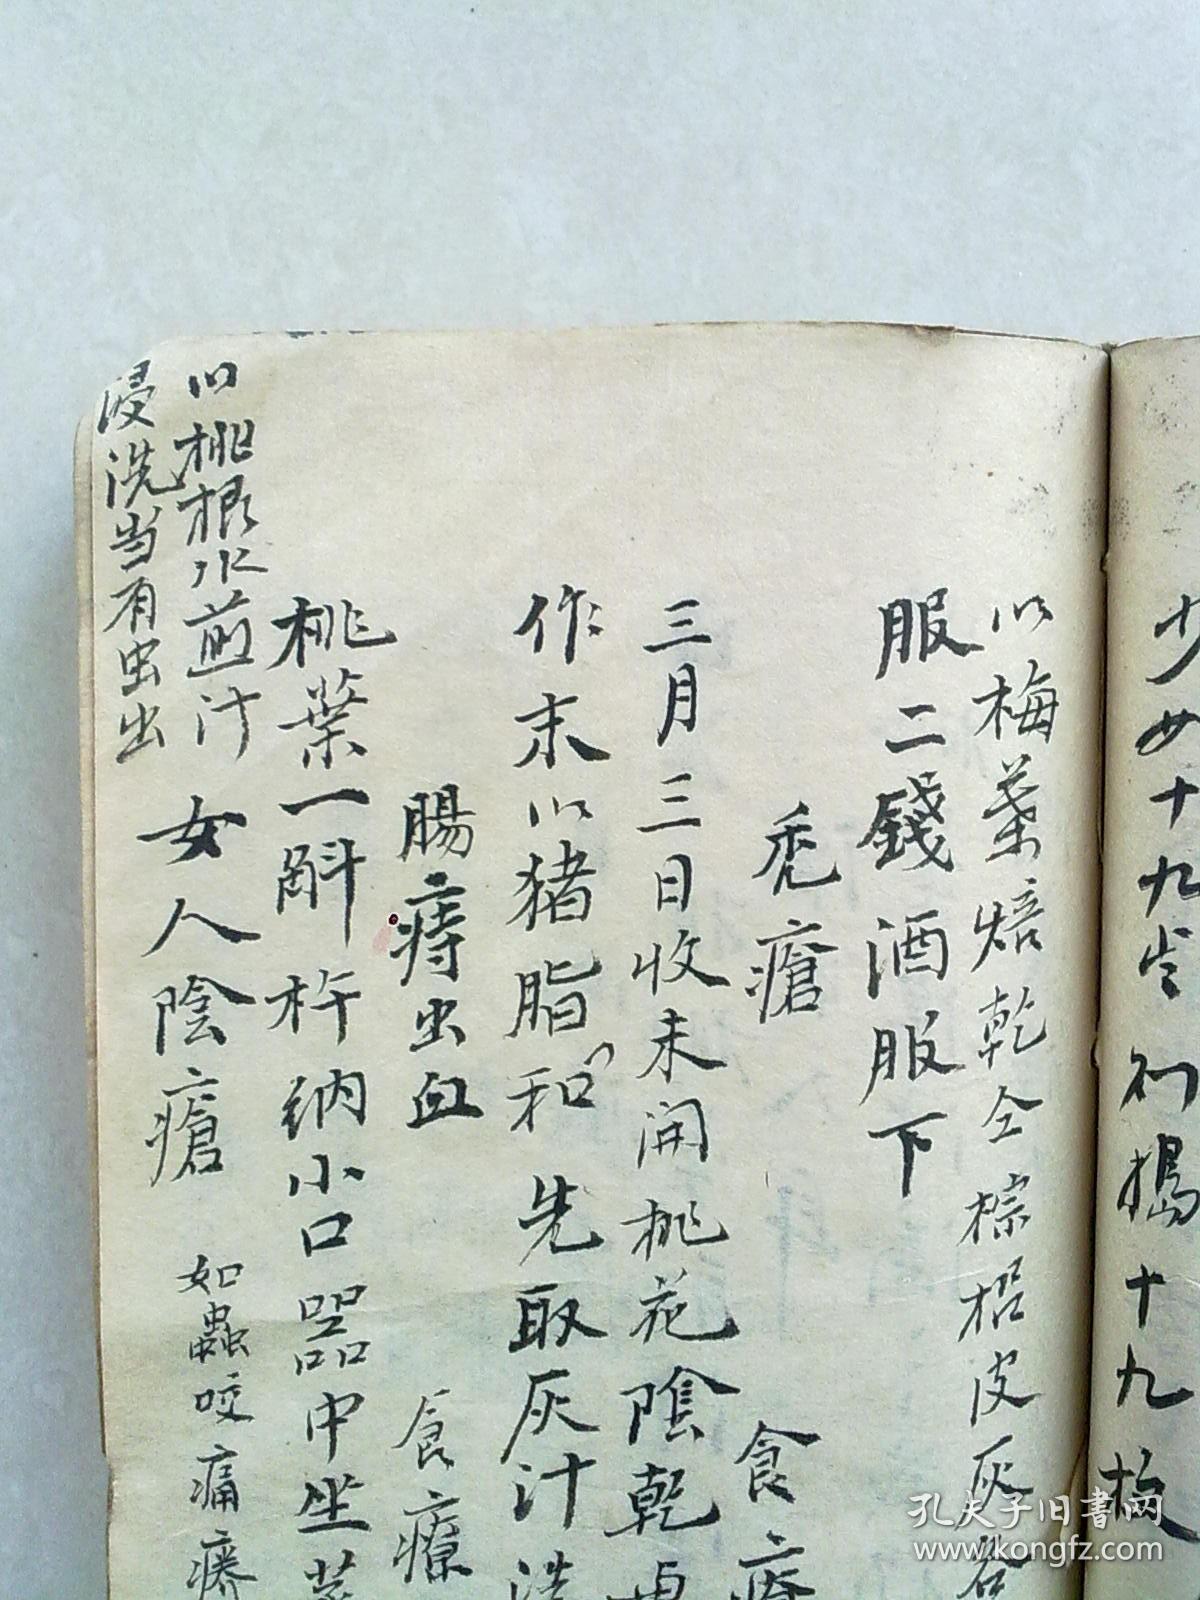 廿女十九岁初搗十九梅
以梅葉焙乾仝棕榈皮灰各
服二錢酒服下
禿瘡 食療
三月三日收未開桃花陰乾
作末以猪脂和先取灰汁洗
腸痔出血 食療
桃葉一斛杵納小口器中坐蒸
女人陰瘡 如蟲咬痛痒
以桃根水煎汁
浸洗当有虫出
孔夫子旧書网
www.kongfz.com